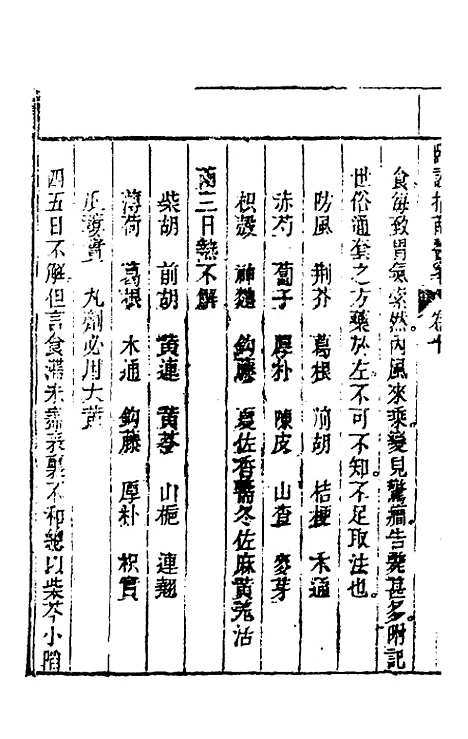 臨證指南醫案 卷十
食每致胃氣索然內風來乘變見驚癎告斃甚多附記
世俗通套之方藥於左不可不知不足取法也
防風 荆芥 葛根 前胡 桔梗 木通
赤芍 蔔子 厚朴 陳皮 山查 麥芽
枳殼 神麯 鈎藤 夏佐香薷冬佐麻黃羗活
兩三日熱不解
柴胡 前胡 黃連 黃芩 山梔 連翹
薄荷 葛根 木通 鈎藤 厚朴 枳實
瓜蔞實 丸劑必用大黃
四五日不解但言食滯未盡表裏不和總以柴芩小陷